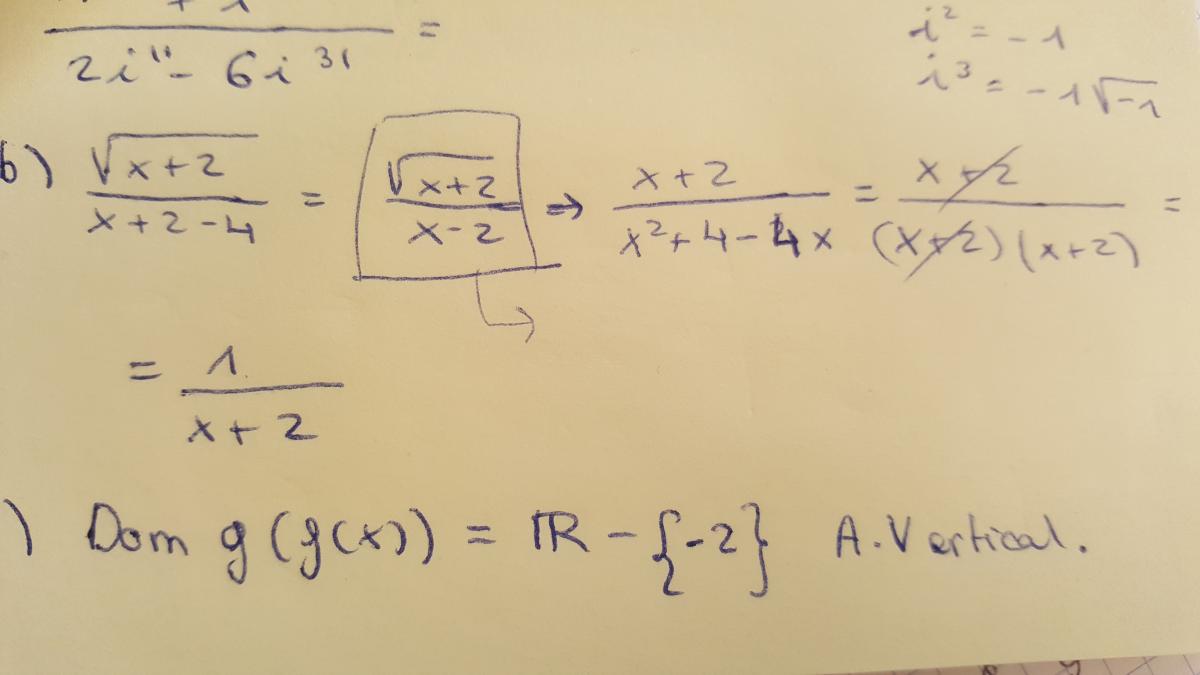 2i¹¹ - 6i³¹ =
i² = -1
i³ = -1√-1
b) √x+2 / x+2-4 = √x+2 / x-2 → x+2 / x²+4-4x = x+2 / (x+2)(x+2) =
= 1 / x+2
) Dom g(g(x)) = ℝ - {-2} A. Vertical.